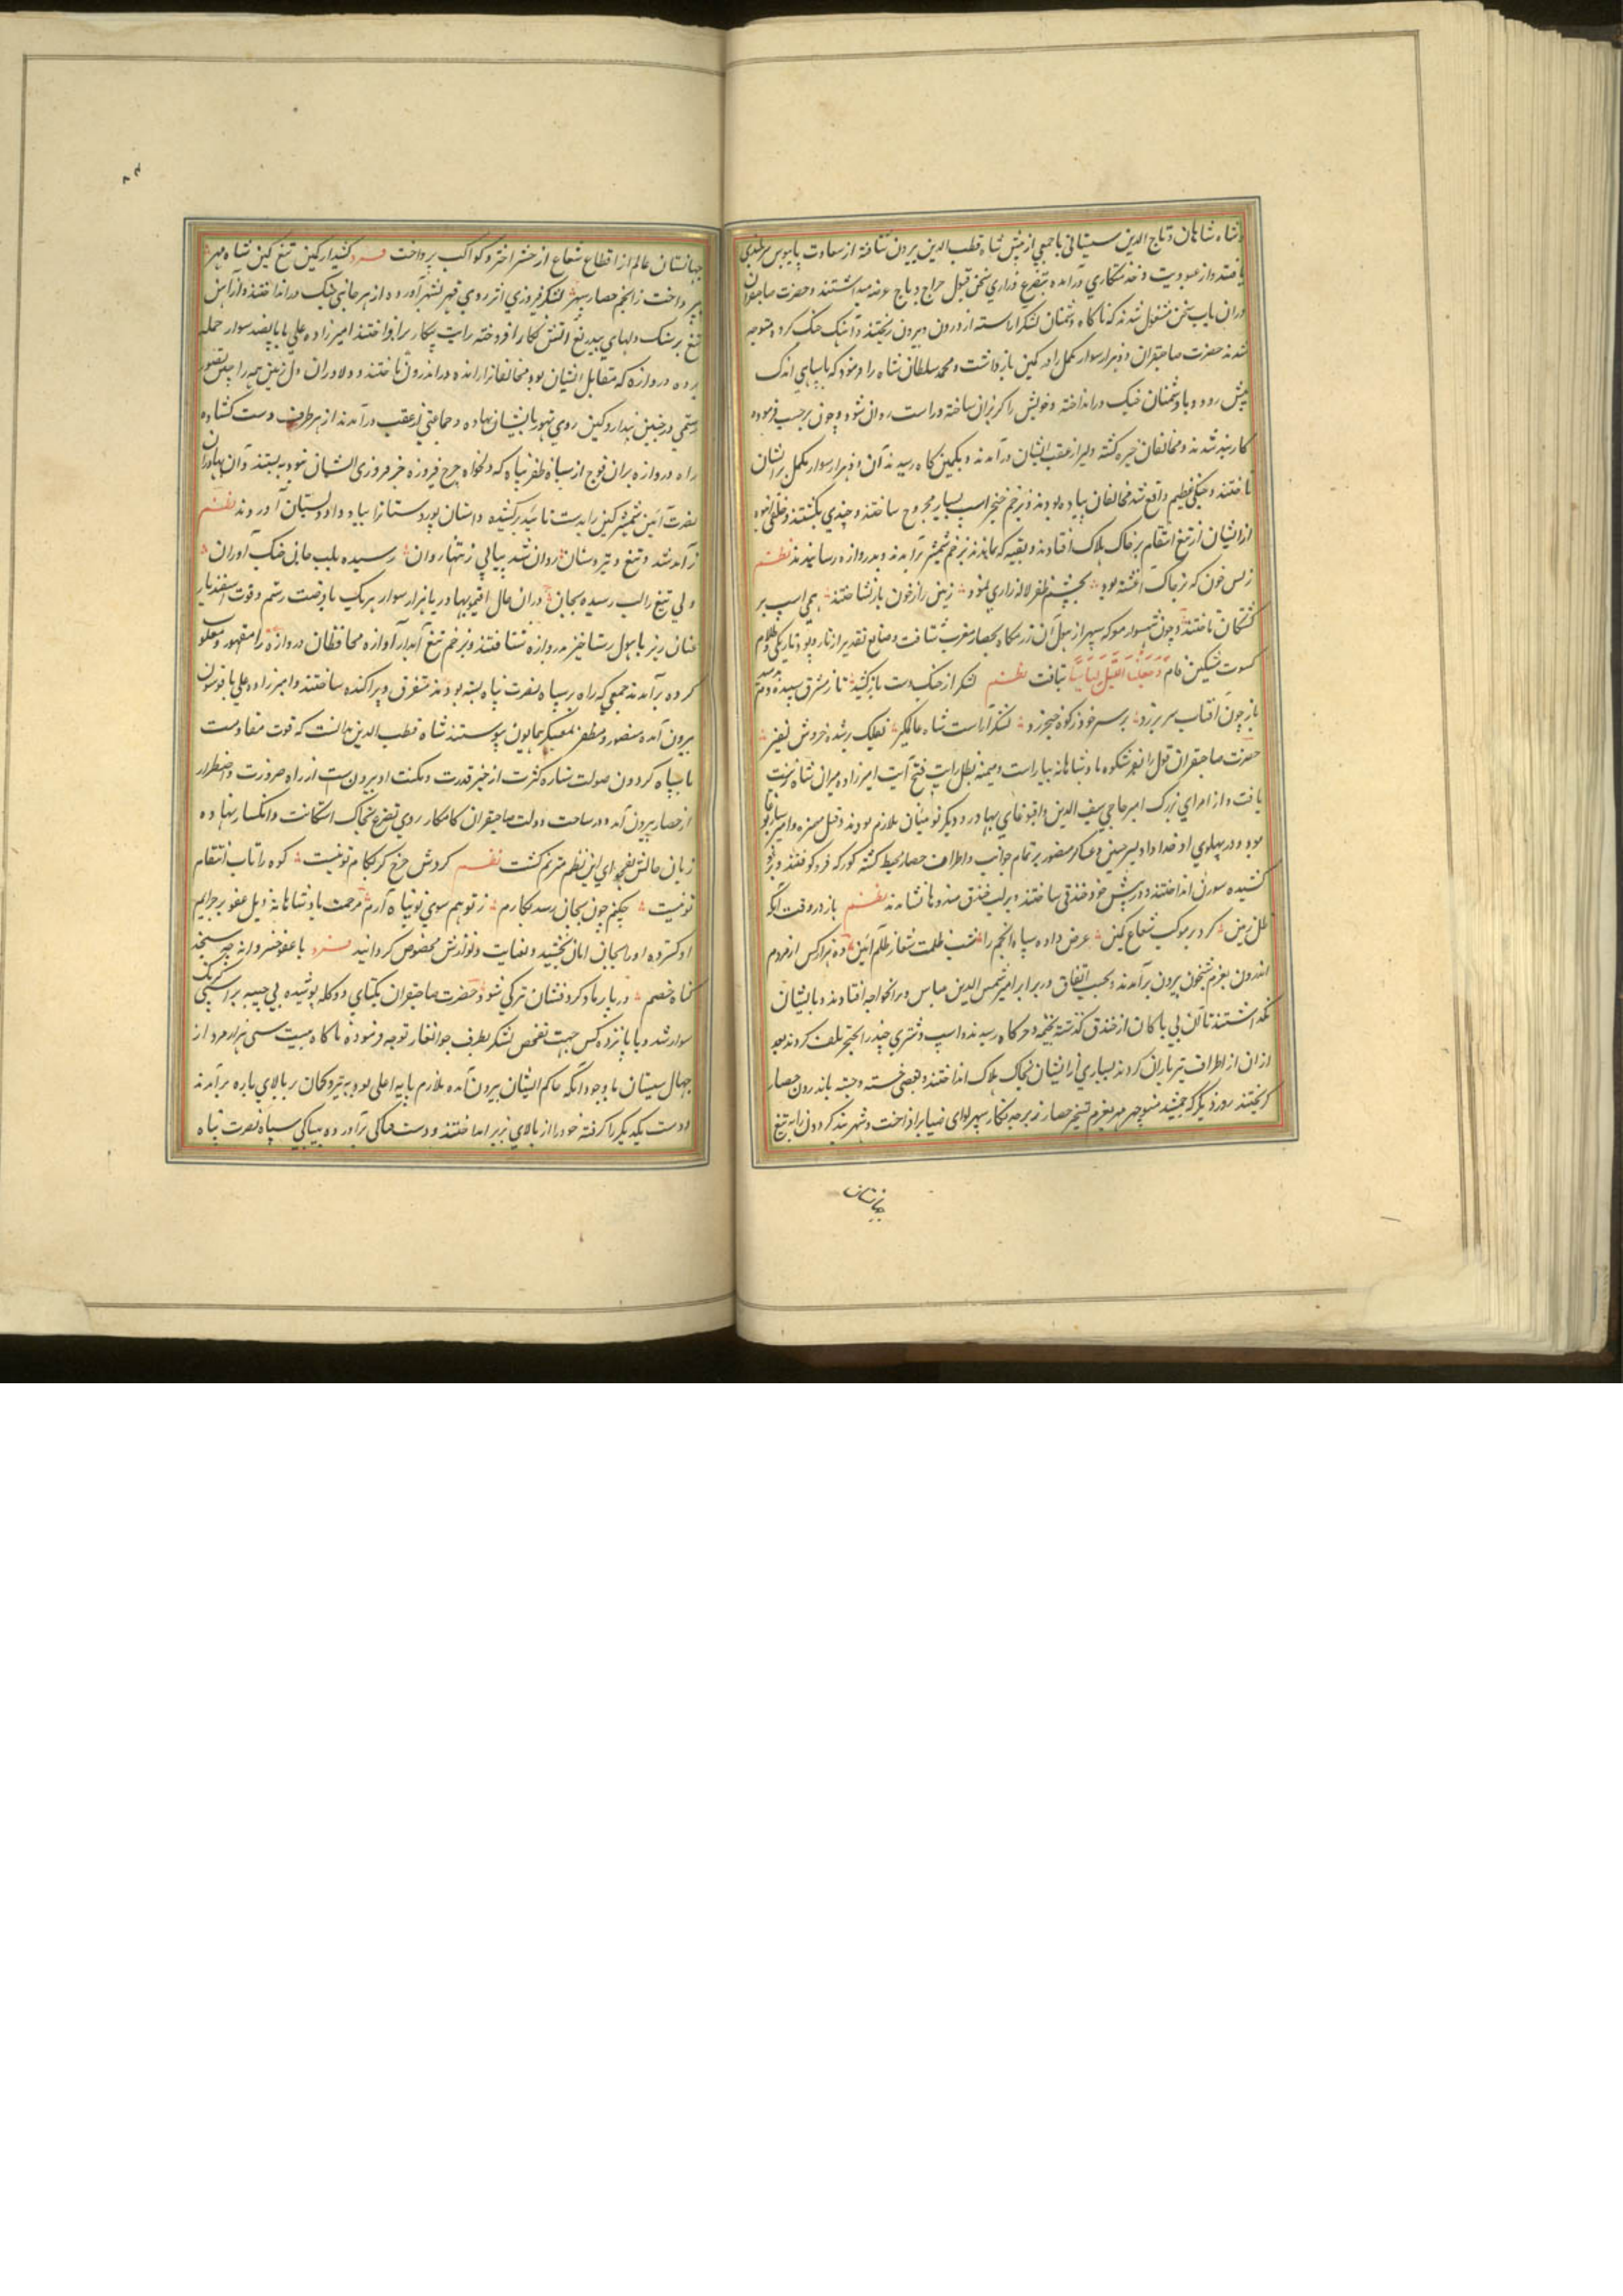 و شاه شاهان و تاج الدین سیستانی با جمعی از پیش شاه قطب الدین بیرون شتافته از سعادت پایبوس سربلندی
یافتند و از عبودیت و خدمتکاری درآمده بتضرع و زاری سخن قبول خراج و باج عرضه میداشتند و حضرت صاحبقران
دران باب بسخن مشغول شدند که ناکاه دشمنان لشکر اراسته از درون و بیرون ریختند و آهنک جنک کرده متوجه
شدند حضرت صاحبقران دو هزار سوار مکمل را در کمین بازداشت و محمد سلطان شاه را فرمود که با سپاهی اندک
پیش رود و با دشمنان جنک درانداخته و خویش را کریزان ساخته و راست روان شود و چون برحسب فرموده
کاربند شدند و مخالفان خیره کشته و لیر از عقب ایشان درآمدند و بکمین کاه رسیدند آن دو هزار سوار مکمل بر ایشان
تاختند و جنکی عظیم واقع شد مخالفان پیاده بودند و بزخم خنجر اسپ بسیار مجروح ساختند و چندی بکشتند و خلقی انبوه
از ایشان از تیغ انتقام بر خاک هلاک افتادند و بقیه که ماندند بزخم شمشیر براندند و بدروازه رسانیدند نظم
ز بس خون که بر خاک اغشته بود بچشم ظفر لاله زاری نمود زمین را ز خون بازنشاختند همی اسپ بر
کشتکان تاختند و چون شهسوار معرکه سپهر از هول آن رزمکاه بحصار مغرب شتافت و صانع تقدیر از تار و پود تاریکی و ظلام
کسوت مشکین فام وَجَعَلْنَا اللَّیْلَ لِبَاسًا ببافت نظم لشکر از جنک دست بازکشید تا ز مشرق سپیده دم بدمید
باز چون افتاب سر برزد بر سر خود ز کوه خنجر زد لشکر آراست شاه عالمکیر بفلک بر شده خروش نفیر
حضرت صاحبقران قول را بفر شکوه پادشاهانه بیاراست و میمنه بظل رایت فتح آیت امیرزاده میران شاه زینت
یافت و از امرای بزرک امیر حاجی سیف الدین و اقبوغای بهادر و دیکر نوئینان ملازم بودند و
بود و در پهلوی او خداداد پسر حسین و عساکر منصور بر تمام جوانب و اطراف حصار محیط کشته کورکه فروکوفتند و
کشیده سورن انداختند و در پیش خود خندقی ساختند و بر لب خندق مندوها نشاندند نظم باز در وقت آنکه
ظل زمین کرد بر موکب شعاع کمین عرض داده سپاه انجم را شب ظلمت شعار ظلم آئین ده هزار کس از مردم
اندرون بعزم شبخون بیرون برآمدند و بحسب اتفاق در برابر امیر شمس الدین عباس و براتخواجه افتادند و با ایشان
نکذاشتند تا آن بی باکان از خندق کذشته بخیمه و خرکاه رسیدند و اسپ و شتری چند را بخنجر تلف کردند بعد
ازان از اطراف تیرباران کردند بسیاری را ز ایشان بخاک هلاک انداختند و بعضی خسته و جسته باندرون حصار
کریختند روز دیکر که جمشید منوچهر مهر بعزم تسخیر حصار زبرجد نکار سپهر لوای ضیا برافراخت و شهربند کردون را به تیغ
جهانستان
جهانستان عالم از اقطاع شعاع از حشر اختر و کواکب پرداخت فرد کشید ار کمین تیغ کین شاه مهر
بپرداخت ز انجم حصار سپهر لشکر فیروزی اثر روی قهر بشهر آورده از هر جانبی جنک درانداختند و از آهن
تیغ بر سنک دلهای بیدریغ آتش کارزار افروخته رایت پیکار برافراختند امیرزاده علی با پانصد سوار حمله
برده دروازه که مقابل ایشان بود مخالفانرا رانده دراندرون تاختند و دلاوران
رستمی در جبین پندار و کین روی تهور بایشان نهاده و جماعتی از عقب درآمدند از هر طرف دست کشاده
راه دروازه بران فوج از سپاه ظفر پناه که دلخواه چرخ فیروزه جز فروزی ایشان نبود به بستند و آن بهادران
نصرت آئین شمشیر کین را بدست تائید برکشیده داستان پور دستانرا بیاد
زآمد شد و تیغ و تیر و سنان روان شد پیاپی ز تنها روان رسیده بلب جانی جنک آوران
ولی تیغ را لب رسیده بجان دران حال اقتیمور بهادر با هزار سوار هر یک با فرصت رستم و قوت اسفندیار
عنان ریز با هول رستاخیز بدروازه شتافتند و بزخم تیغ آبدار آوازه محافظان دروازه را مقهور و مغلوب
کرده برآمدند جمعی که راه بر سپاه نصرت پناه بسته بودند متفرق و پراکنده ساختند و امیرزاده علی با قوشون
بیرون آمده منصور و مظفر بمعسکر همایون پیوستند شاه قطب الدین بدانست که قوت مقاومت
با سپاه کردون صولت ستاره کثرت از حیز قدرت و مکنت او بیرونست از راه ضرورت و اضطرار
از حصار بیرون آمد و در ساحت دولت صاحبقران کامکار روی تضرع بخاک استکانت و انکسار نهاده
زبان حالش بفحوای این نظم مترنم کشت نظم کردش چرخ کر بکام تو نیست کوه را تاب انتقام
تو نیست چکنم چون بجان رسد کارم ز تو هم سوی تو پناه آرم مرحمت پادشاهانه ذیل عفو بر جرایم
او کسترده او را بجان امان بخشید و بعنایت و نوازش مخصوص کردانید فرد با عفو خسروانه چه سنجد
کناه خصم دریا بباد کرد فشان ترکی شود حضرت صاحبقران یکتای دوکله پوشیده بی جیبه بر اسبکی کرنک
سوار شد و با پانزده کس جهت تفحص لشکر بطرف جوانغار توجه فرموده ناکاه بیست سی هزار مرد از
جهال سیستان با وجود آنکه حاکم ایشان بیرون آمده ملازم پایه اعلی بود به تیر و کمان بر بالای باره برآمدند
و دست یکدیکر را کرفته خود را از بالای بزیر انداختند و دست هتاکی برآورده بیباکی سپاه نصرت پناه